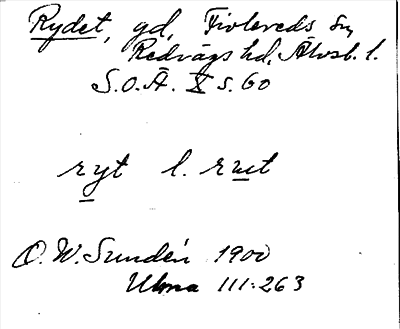 Rydet, gd, Fivlereds sn,
Redvägs hd, Älvsb. l.
S.O.Ä. X s. 60
ryt l. rut
O.W. Sundén 1900
Ulma 111:263